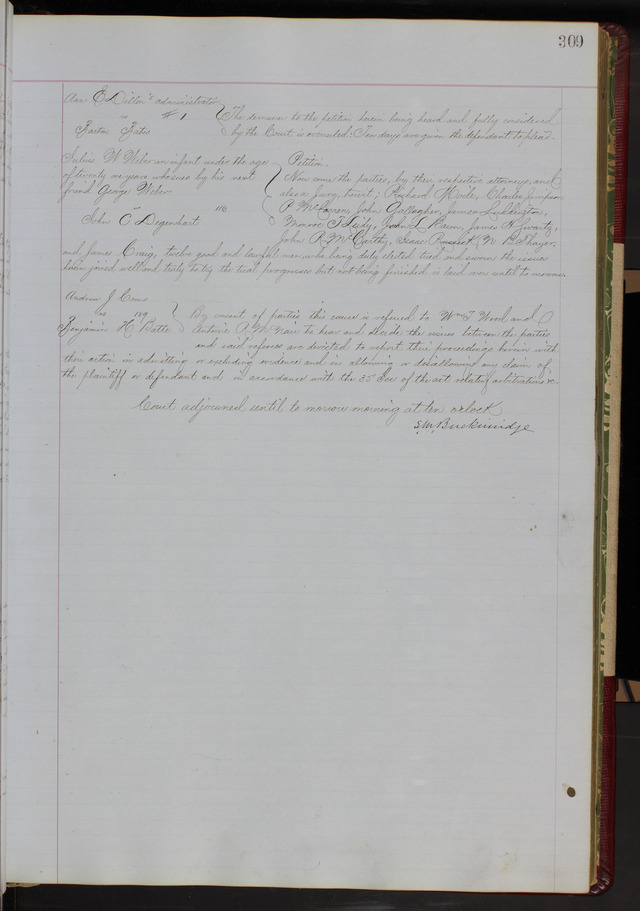 309
Ann E Dillon administrator
vs # 1 The demurrer to the petition herein being heard and fully considered
by the Court is overruled: Ten days are given the defendant to plead
Julius W Weber an infant under the age Petition.
of twenty one years who sues by his next Now come the parties, by their respective attorneys, and
friend George Weber also a Jury, towit; Richard Charles Simpson
vs 116 P McCarren, John Gallagher, James Luddington,
John C Degenhart Monroe T John L James N Swartz,
John R McCarthy, Isaac M B Thayer,
and James Craig, twelve good and lawful men, who being duly elected tried and sworn the issue
herein joined well and truly to try the trial progresses but not being finished is laid over until to morrow
Andrew J
vs 139 By consent of parties this cause is referred to Wm T Wood and
Benjamin H Batte Antoine A McNair to hear and decide the issues between the parties
and said referees are directed to report their proceedings herein with
their action in admitting or excluding evidence and in allowing or disallowing any claim of
the plaintiff or defendant and in accordance with the 35 Sec of the act relating arbitrations &c
Court adjourned until to morrow morning at ten o'clock
S.M. Breckinridge